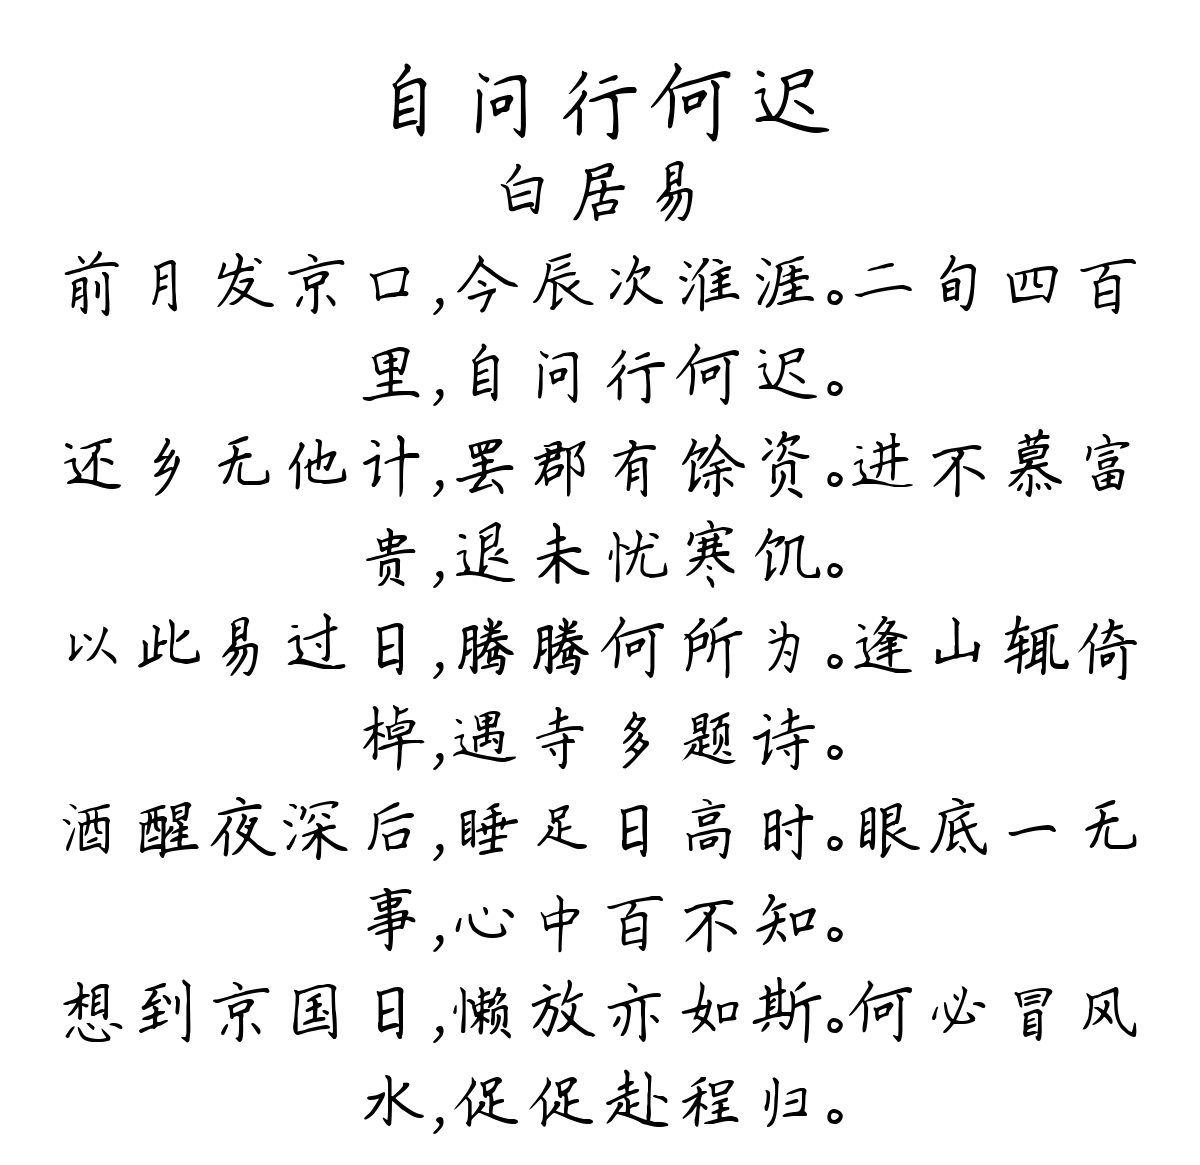 自问行何迟
白居易
前月发京口,今辰次淮涯。二旬四百
里,自问行何迟。
还乡无他计,罢郡有馀资。进不慕富
贵,退未忧寒饥。
以此易过日,腾腾何所为。逢山辄倚
棹,遇寺多题诗。
酒醒夜深后,睡足日高时。眼底一无
事,心中百不知。
想到京国日,懒放亦如斯。何必冒风
水,促促赴程归。